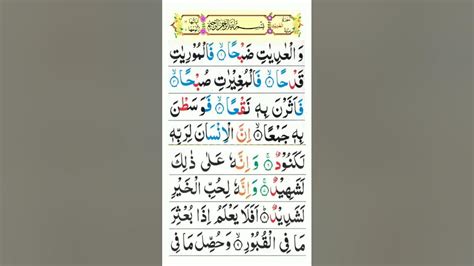 بِسْمِ اللّٰهِ الرَّحْمٰنِ الرَّحِيْمِ
وَ الْعٰدِيٰتِ ضَبْحًا ۙ فَالْمُوْرِيٰتِ
قَدْحًا ۙ فَالْمُغِيْرٰتِ صُبْحًا ۙ
فَاَثَرْنَ بِهٖ نَقْعًا ۙ فَوَسَطْنَ
بِهٖ جَمْعًا ۙ اِنَّ الْاِنْسَانَ لِرَبِّهٖ
لَكَنُوْدٌ ۚ وَ اِنَّهٗ عَلٰى ذٰلِكَ
لَشَهِيْدٌ ۚ وَ اِنَّهٗ لِحُبِّ الْخَيْرِ
لَشَدِيْدٌ ؕ اَفَلَا يَعْلَمُ اِذَا بُعْثِرَ
مَا فِى الْقُبُوْرِ ۙ وَحُصِّلَ مَا فِى